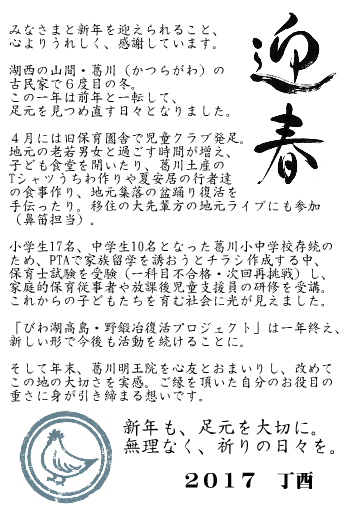 迎春
みなさまと新年を迎えられること、
心よりうれしく、感謝しています。
湖西の山間・葛川（かつらがわ）の
古民家で６度目の冬。
この一年は前年と一転して、
足元を見つめ直す日々となりました。
４月には旧保育園舎で児童クラブ発足。
地元の老若男女と過ごす時間が増え、
子ども食堂を開いたり、葛川土産の
Tシャツうちわ作りや夏安居の行者達
の食事作り、地元集落の盆踊り復活を
手伝ったり。移住の大先輩方の地元ライブにも参加
（鼻笛担当）。
小学生17名、中学生10名となった葛川小中学校存続の
ため、PTAで家族留学を誘おうとチラシ作成する中、
保育士試験を受験（一科目不合格・次回再挑戦）し、
家庭的保育従事者や放課後児童支援員の研修を受講。
これからの子どもたちを育む社会に光が見えました。
「びわ湖高島・野鍛冶復活プロジェクト」は一年終え、
新しい形で今後も活動を続けることに。
そして年末、葛川明王院を心友とおまいりし、改めて
この地の大切さを実感。ご縁を頂いた自分のお役目の
重さに身が引き締まる想いです。
新年も、足元を大切に。
無理なく、祈りの日々を。
２０１７　丁酉